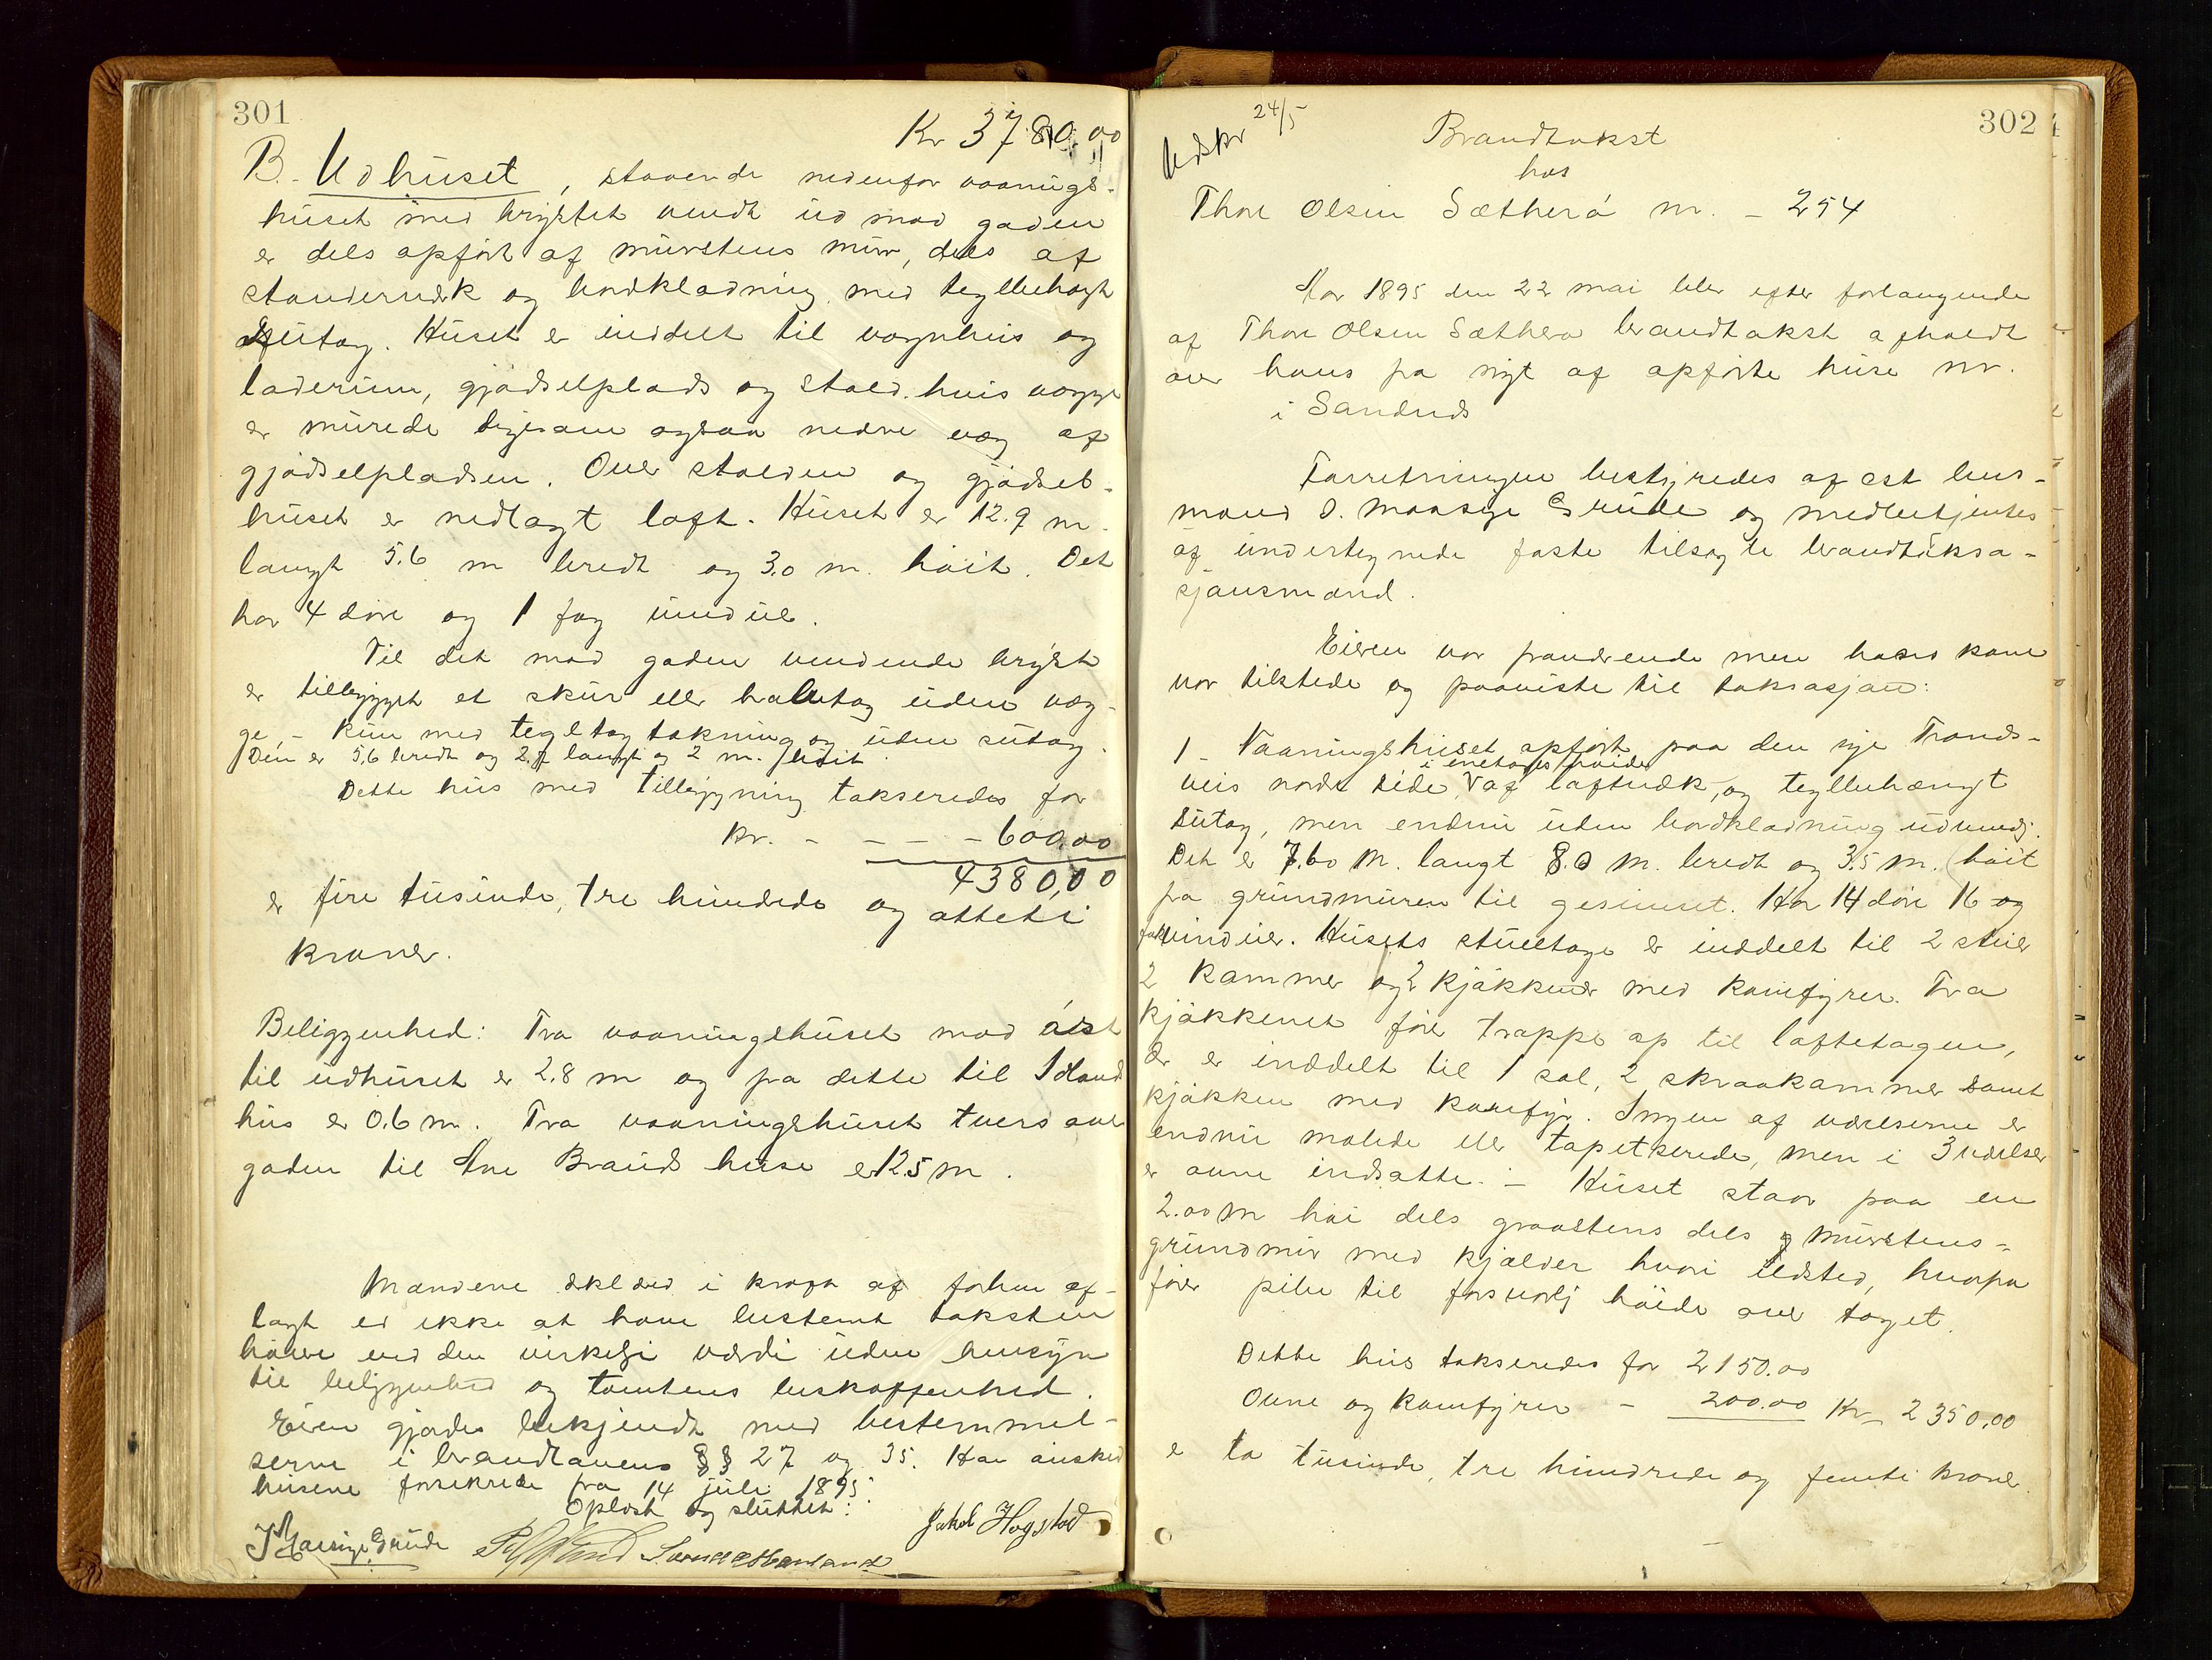 301
Kr 3780,00
B. Udhuset, staaende nedenfor vaanings-
huset med brystet vendt ud mod gaden
er dels opført af murstens mur, dels af
stenderverk og bordklædning med teglbehægt
sutag. Huset er inddelt til vognhus og
laderum, gjødselplads og stald. hvis vægge
er murede ligesom ogsaa nedre væg af
gjødselpladsen. Over stalden og gjødsel-
huset er nedlagt loft. Huset er 12.9 m.
langt 5.6 m bredt og 3.0 m. høit. Det
har 4 døre og 1 fag vinduer.
Til det mod gaden vendende bryst
er tilbygget et skur eller halvtag uden væg-
ge, - kun med tegltag takning og uden sutag.
Den er 5,6 bredt og 2.7 langt og 2 m. høit.
Dette hus med tilbygning takseredes for
Kr. - - - - 600,00
4380,00
er fire tusinde, tre hundrede og otteti
kroner.
Beliggenhed: Fra vaaningshuset mod øst
til udhuset er 2.8 m og fra dette til
hus er 0.6 m. Fra vaaningshuset tvers over
gaden til Ane Brauds huse er 12.5 m.
Mændene erklæred i kraft af forhen af-
lagt ed ikke at have bestemt taksten
høiere end den virkelige værdi uden hensyn
til beliggenhed og tomtens beskaffenhed.
Eieren gjordes bekjendt med bestemmel-
serne i brandlovens §§ 27 og 35. Han ønsked
husene forsikrede fra 14 juli 1895.
Oplæst og sluttet:
Maasige Grude
Jakob Hogstad
302
Udskr 24/5
Brandtakst
hos
Thore Olsen Sætherø nr. - 254
Aar 1895 den 22 mai blev efter forlangende
af Thore Olsen Sætherø brandtakst afholdt
over hans fra nyt af opførte huse nr.
i Sandnes
Forretningen bestyredes af cst lens-
mand O. Maasige Grude og medbetjentes
af undertegnede faste tilsagte brandtaksa-
sjonsmænd.
Eieren var fraværende men hans kone
var tilstede og paaviste til taksasjon:
1 - Vaaningshuset opført paa den nye Tronds-
veis nordre side, i enetages høide af laftverk, og teglbehængt
sutag, men endnu uden bordklædning udvendig.
Det er 7.60 m. langt 8.0 m. bredt og 3.5 m. høit
fra grundmuren til gesimset. Har 14 døre 16 og
fag vinduer. Husets stueetage er inddelt til 2 stuer
2 kammer og 2 kjøkkener med komfyrer. Fra
kjøkkenet fører trappe op til loftetagen,
der er inddelt til 1 sal, 2 skraakammer samt
kjøkken med komfyr. Ingen af værelserne er
endnu malede eller tapetserede, men i 3 værelser
er ovne indsatte. - Huset staar paa en
2.00 m høi dels graastens dels murstens-
grundmur med kjælder hvori ildsted, hvorfra
fører piber til forsvarlig høide over taget.
Dette hus takseredes for 2150.00
Ovne og komfyrer - 200.00 Kr 2350,00
er to tusinde, tre hundrede og femti kroner.